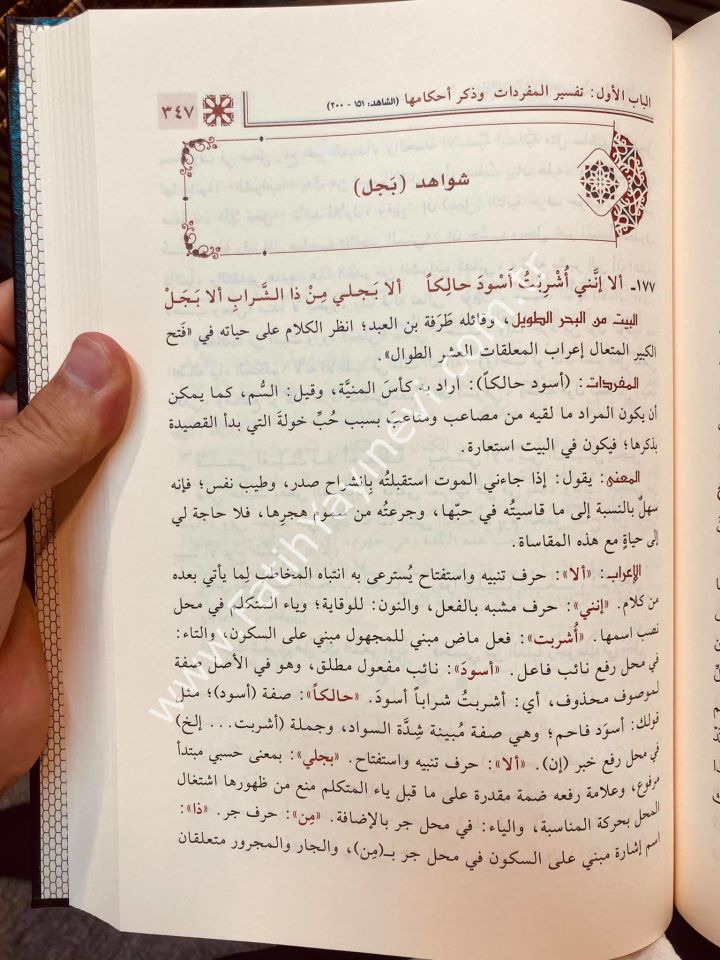 الباب الأول: تفسير المفردات وذكر أحكامها (الشاهد: ١٥١ - ٢٠٠)
٣٤٧
شواهد (بَجَل)
١٧٧- ألا إنَّني أُشْرِبْتُ أَسْوَدَ حالِكاً ألا بَجَلي مِنْ ذا الشَّرابِ ألا بَجَلْ
البيت من البحر الطويل، وقائله طَرَفة بن العبد؛ انظر الكلام على حياته في «فَتح
الكبير المتعال إعراب المعلقات العشر الطوال».
المفردات: (أسود حالكاً): أراد به كأسَ المنيَّة، وقيل: السُّم، كما يمكن
أن يكون المراد ما لقيه من مصاعب ومتاعبَ بسبب حُبِّ خولةَ التي بدأ القصيدة
بذكرها؛ فيكون في البيت استعارة.
المعنى: يقول: إذا جاءني الموت استقبلتُه بِانشراح صدر، وطيب نفس؛ فإنه
سهلٌ بالنسبة إلى ما قاسيتُه في حبّها، وجرعتُه من سموم هجرِها، فلا حاجة لي
إلى حياةٍ مع هذه المقاساة.
الإعراب: «ألا»: حرف تنبيه واستفتاح يُسترعى به انتباه المخاطب لِما يأتي بعده
من كلام. «إنني»: حرف مشبه بالفعل، والنون: للوقاية؛ وياء المتكلم في محل
نصب اسمها. «أُشربت»: فعل ماض مبني للمجهول مبني على السكون، والتاء:
في محل رفع نائب فاعل. «أسودَ»: نائب مفعول مطلق، وهو في الأصل صفة
لموصوف محذوف، أي: أشربتُ شراباً أسودَ. «حالكاً»: صفة (أسود)؛ مثل
قولك: أسوَد فاحم؛ وهي صفة مُبينة شِدَّة السواد، وجملة (أشربت... إلخ)
في محل رفع خبر (إن). «ألا»: حرف تنبيه واستفتاح. «بجلي»: بمعنى حسبي مبتدأ
مرفوع، وعلامة رفعه ضمة مقدرة على ما قبل ياء المتكلم منع من ظهورها اشتغال
المحل بحركة المناسبة، والياء: في محل جر بالإضافة. «مِن»: حرف جر. «ذا»:
اسم إشارة مبني على السكون في محل جر بـ(مِن)، والجار والمجرور متعلقان
www.FatihYayinevi.com.tr